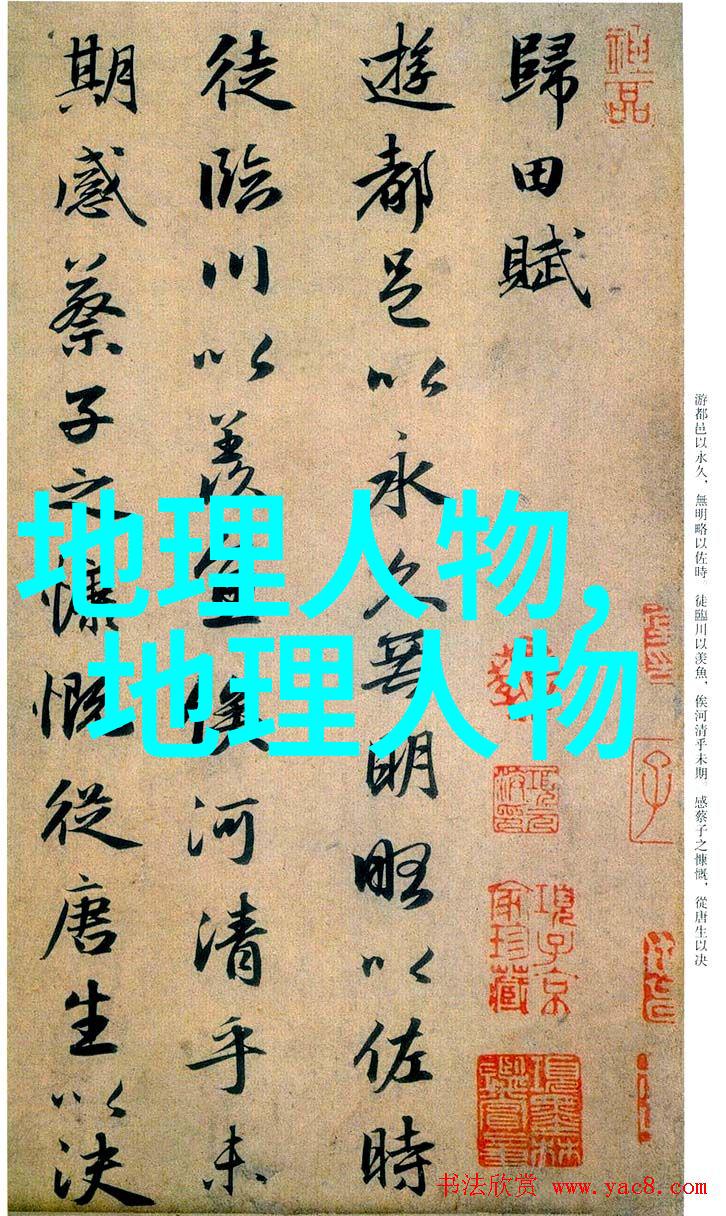 神品
歸田賦
遊都邑以永久無明略以佐時
徒臨川以羨魚俟河清乎未
期感蔡子之慷慨從唐生以決
地理人物,
地理人物
項子京家珍藏
項墨林鑑賞章
游都邑以永久，無明略以佐時。徒臨川以羨魚，俟河清乎未期。感蔡子之慷慨，從唐生以决
书法欣赏 www.yac8.com